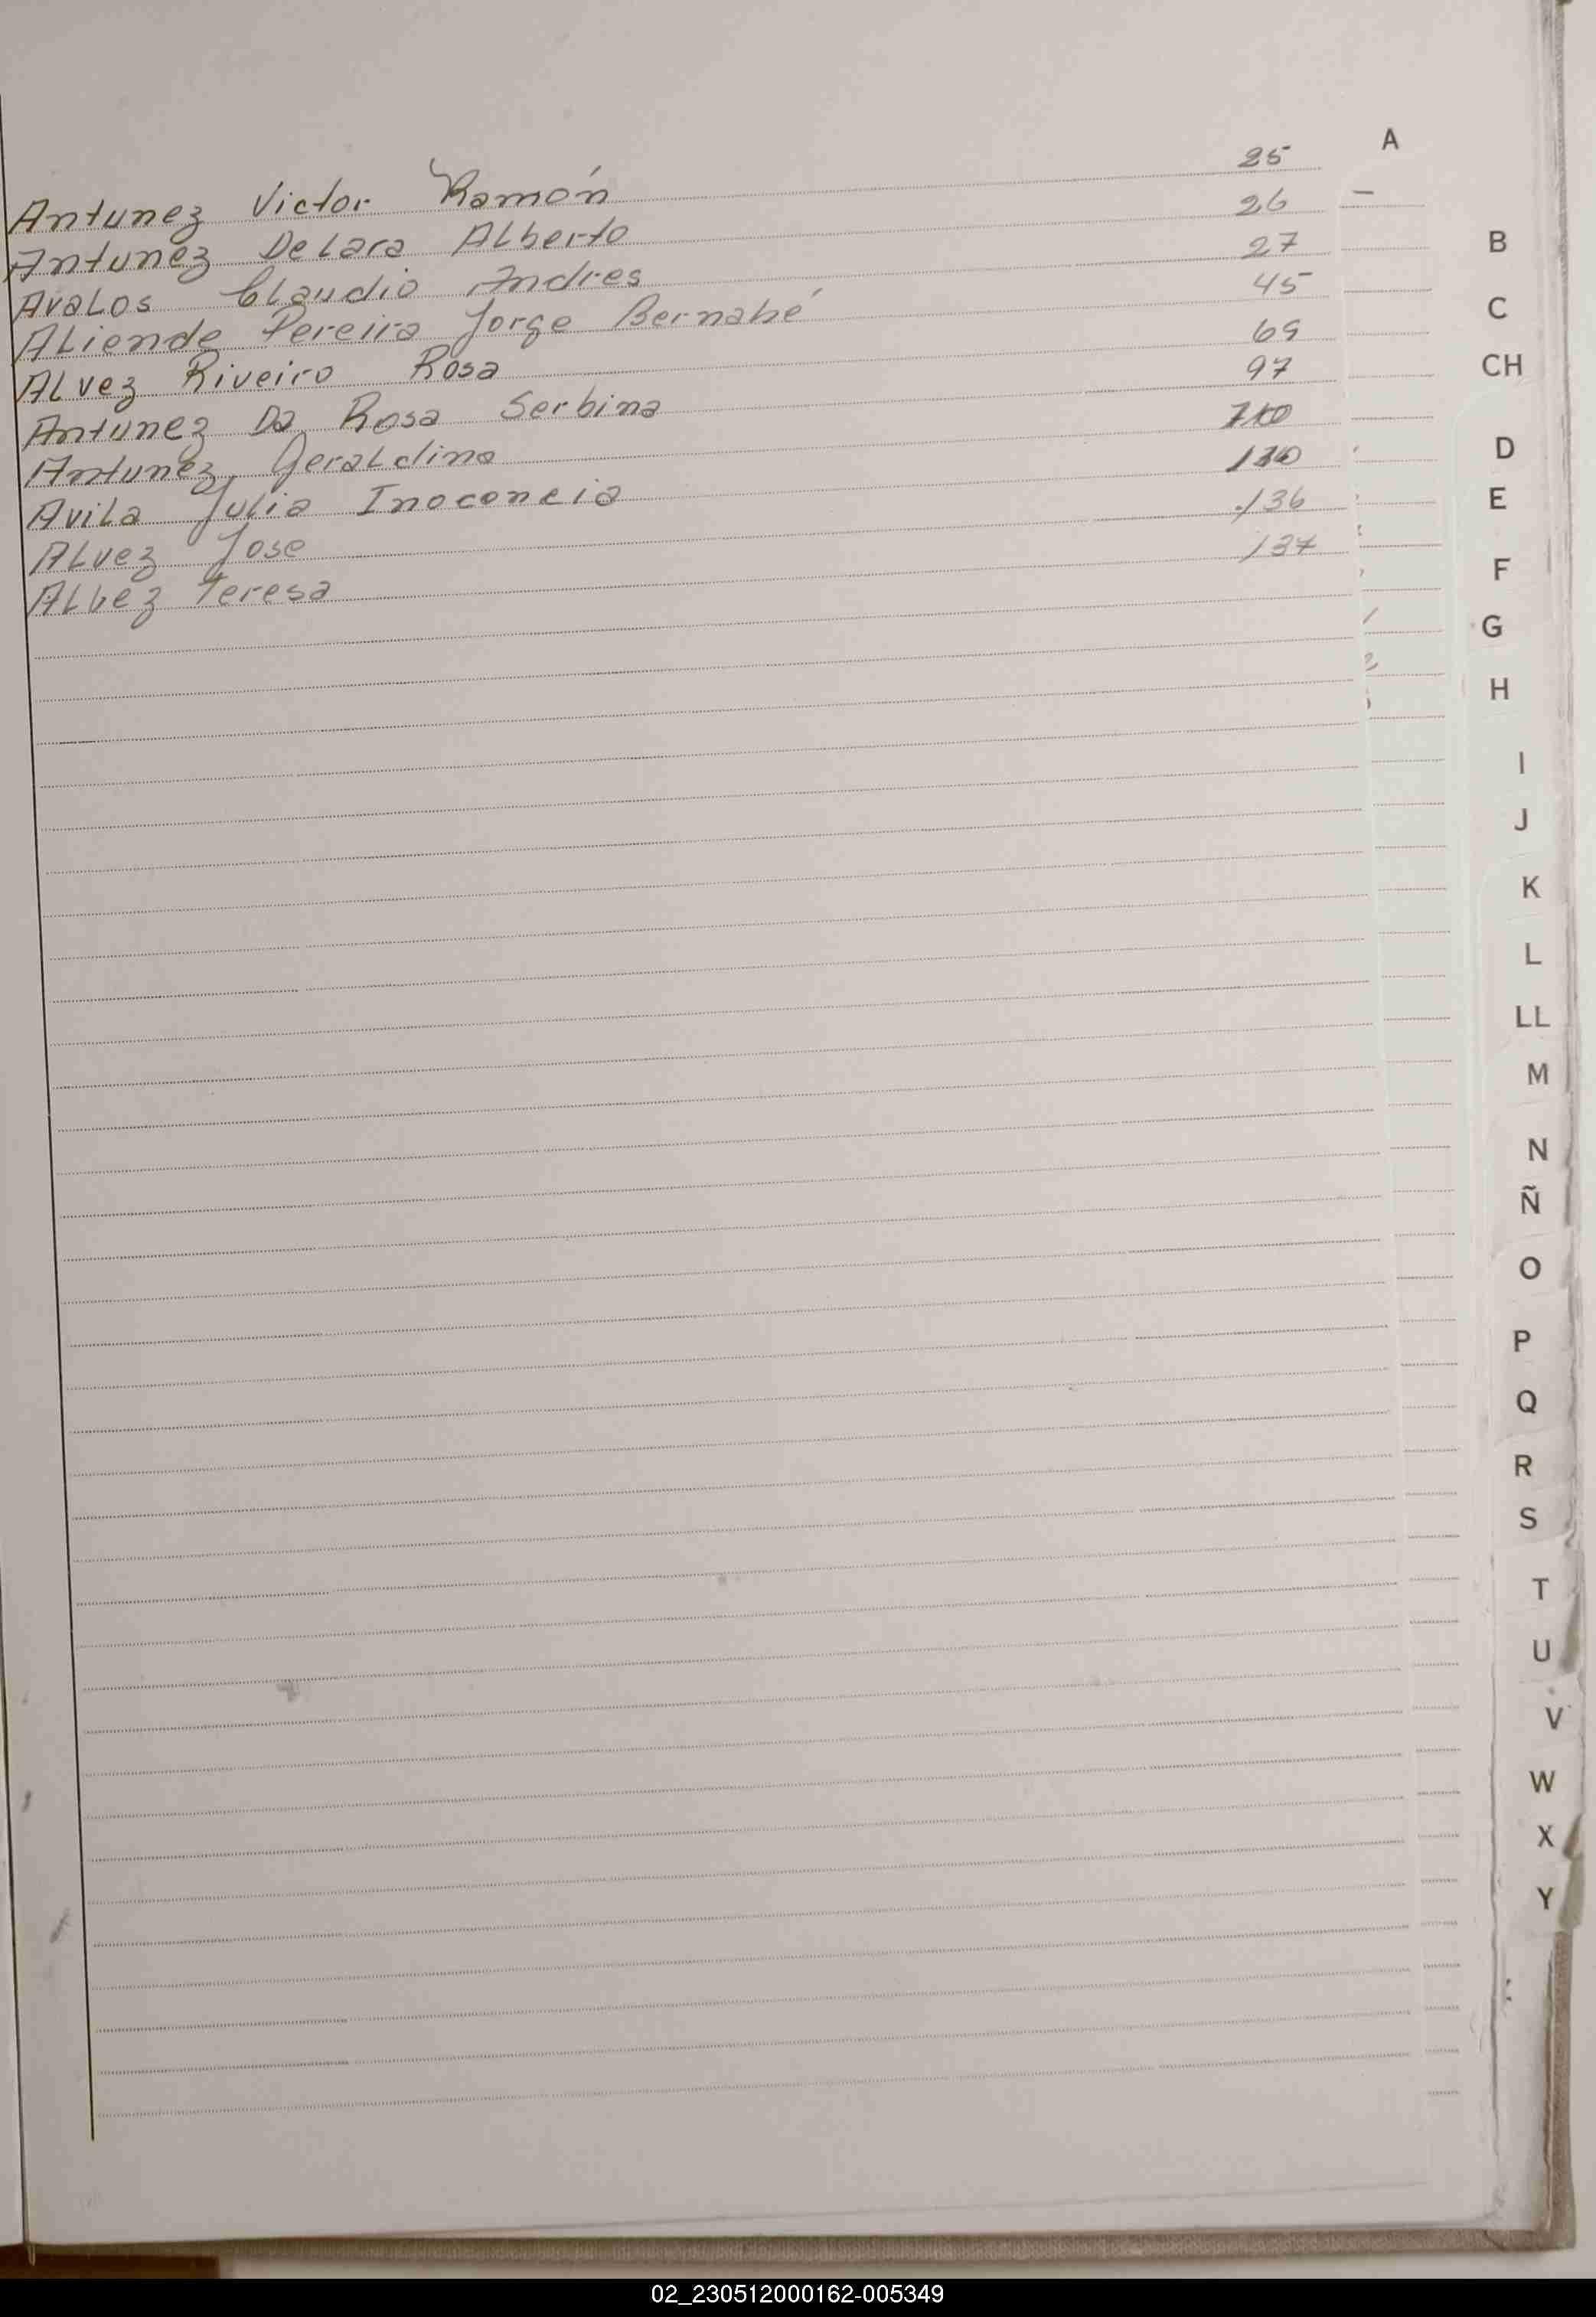 A
Antunez Victor Ramón 25
Antunez De Lara Alberto 26
Avalos Claudio Andres 27
Aliende Pereira Jorge Bernabé 45
Alvez Riveiro Rosa 69
Antunez Da Rosa Serbina 97
Antunez Geraldino
Avila Julia Inocencia 130
Alvez Jose 136
Albez Teresa 137
B
C
CH
D
E
F
G
H
I
J
K
L
LL
M
N
Ñ
O
P
Q
R
S
T
U
V
W
X
Y
02_230512000162-005349